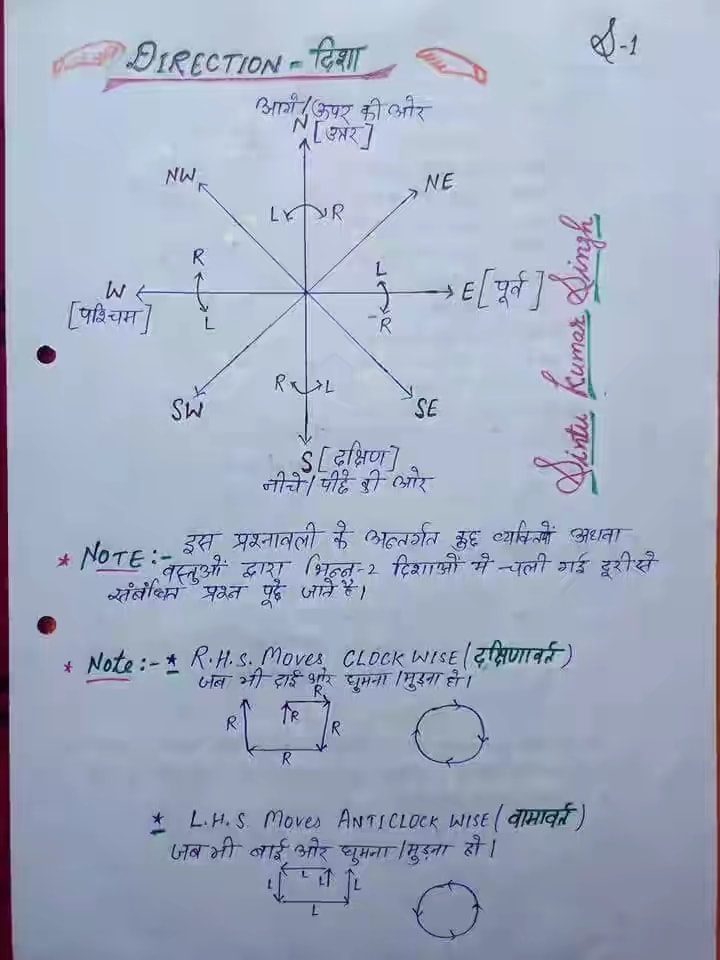 DIRECTION - दिशा
S-1
आगे/ऊपर की ओर
N [उत्तर]
NW
NE
L R
R
L
W
[पश्चिम]
L
R
E [पूर्व]
R L
SW
SE
S [दक्षिण]
नीचे/पीछे की ओर
Sintu Kumar Singh
* NOTE:- इस प्रश्नावली के अन्तर्गत कुछ व्यक्तियों अथवा
वस्तुओं द्वारा भिन्न-2 दिशाओं में चली गई दूरी से
संबंधित प्रश्न पूछे जाते है।
* Note:- * R.H.S. Moves CLOCK WISE (दक्षिणावर्त)
जब भी दाई ओर घुमना/मुड़ना हो।
R
R R R
R
* L.H.S. Moves ANTICLOCK WISE (वामावर्त)
जब भी बाई ओर घुमना/मुड़ना हो।
L L L L
L